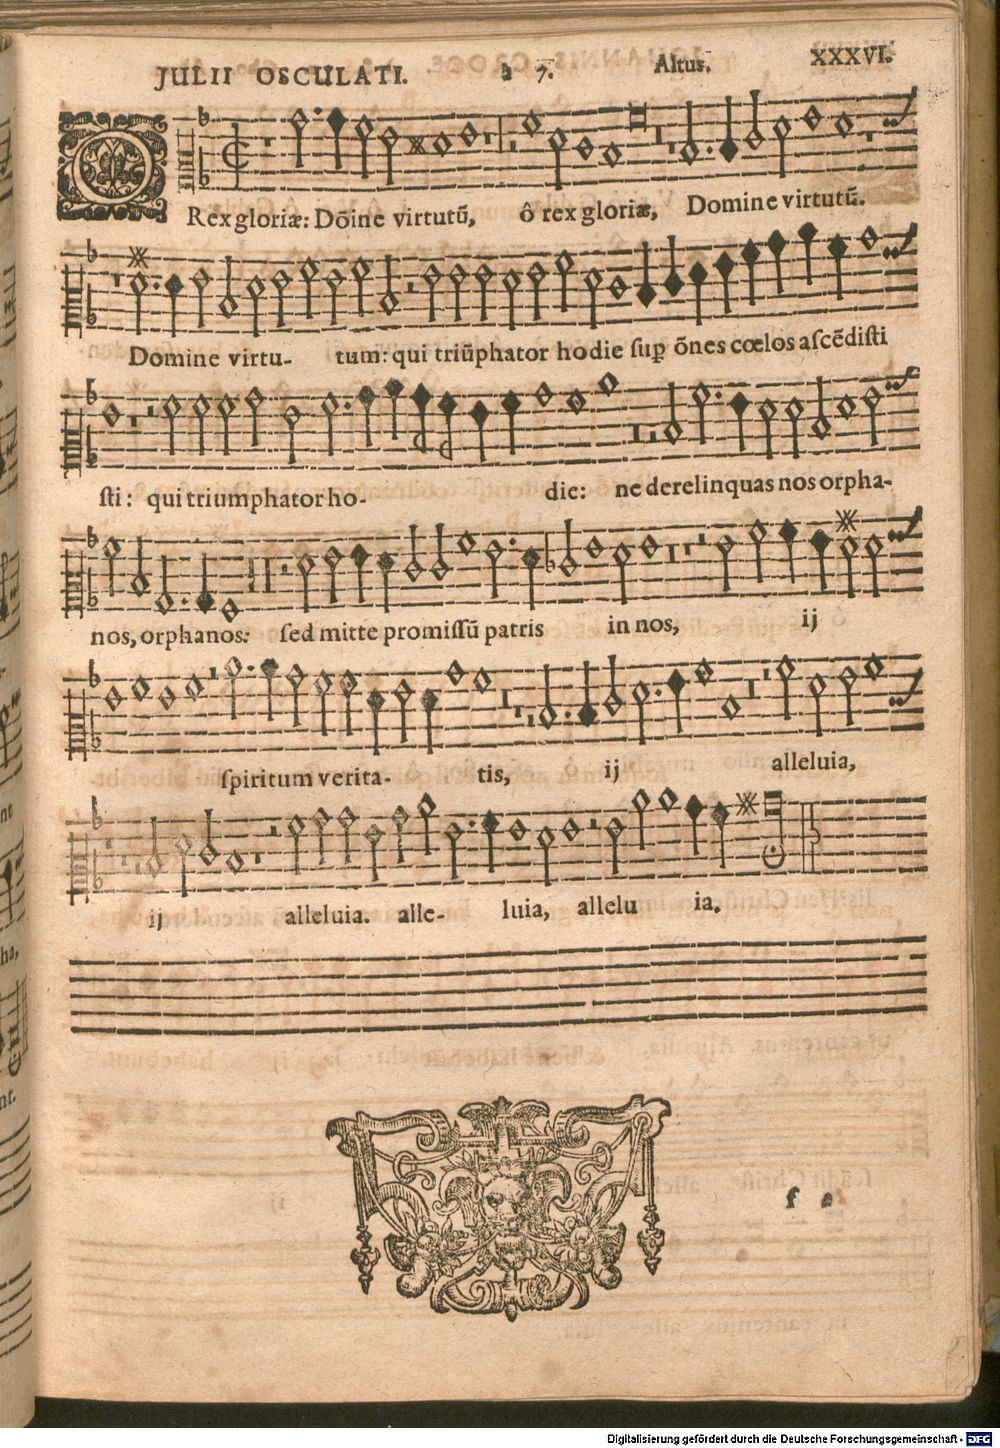 JULII OSCULATI. à 7. Altus. XXXVI.
O Rex gloriæ: Dõine virtutũ, ô rex gloriæ, Domine virtutũ.
Domine virtu- tum: qui triũphator hodie ſuꝑ õnes cœlos aſcẽdiſti
ſti: qui triumphator ho- die: ne derelinquas nos orpha-
nos, orphanos: ſed mitte promiſſũ patris in nos, ij
ſpiritum verita- tis, ij alleluia,
ij alleluia. alle- luia, allelu ia.
f
Digitalisierung gefördert durch die Deutsche Forschungsgemeinschaft - DFG